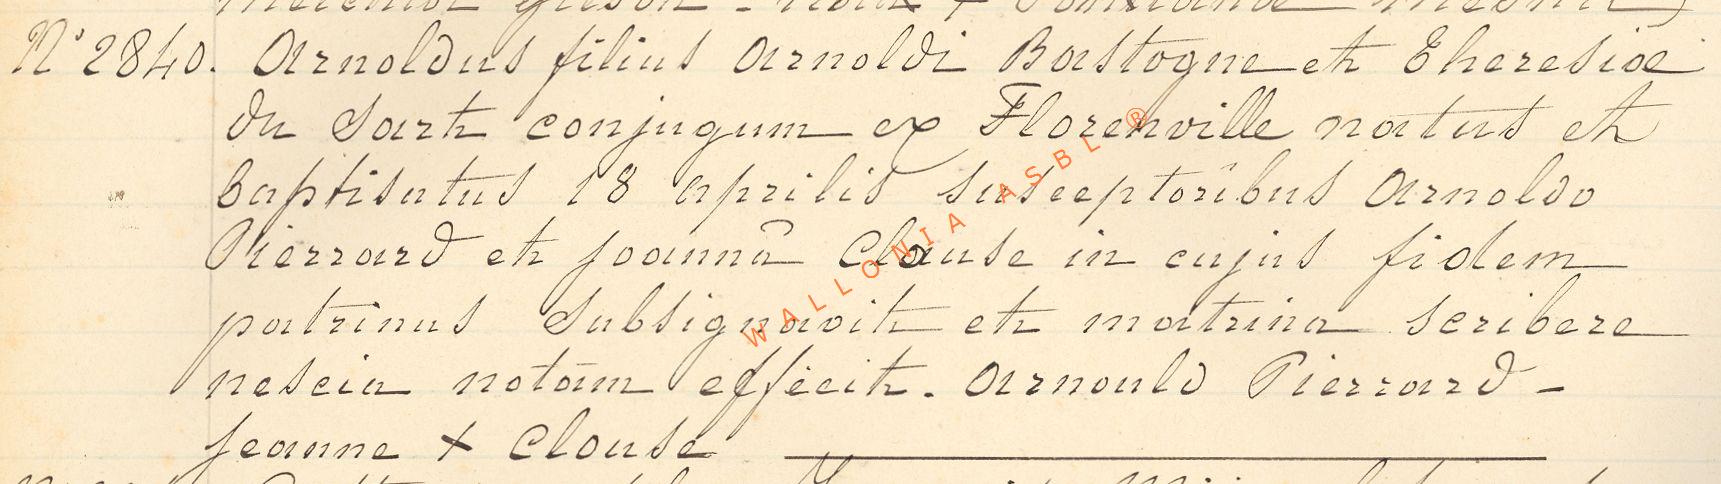 N° 2840. Arnoldus filius Arnoldi Bastogne et Theresiae
du Sart conjugum ex Florenville natus et
baptisatus 18 aprilis susceptoribus Arnoldo
Pierrard et Joannâ Clause in cujus fidem
patrinus subsignavit et matrina scribere
nescia notam effecit. Arnould Pierrard -
Jeanne + Clause
WALLONIA ASBL ®